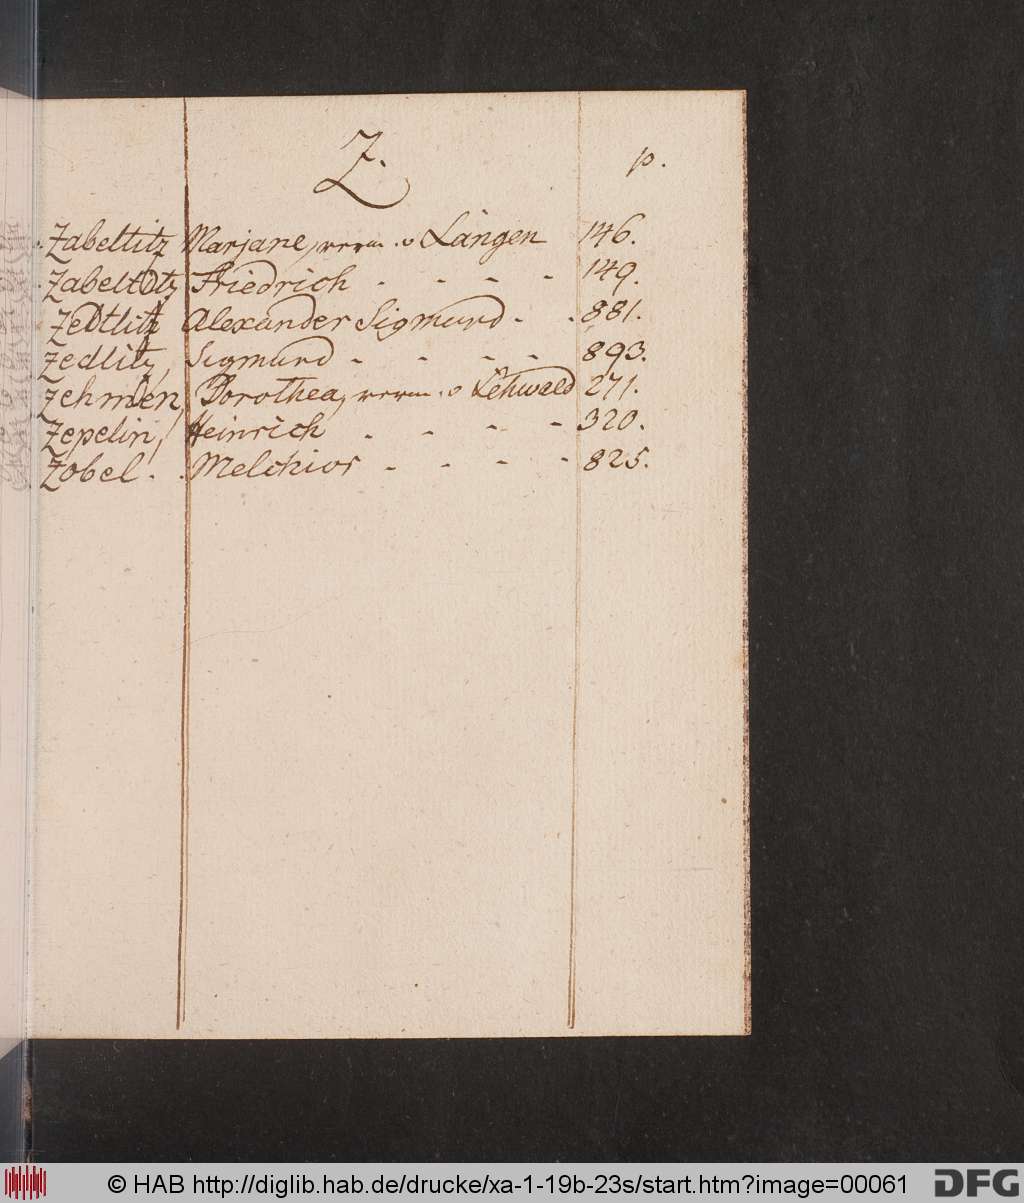 Z. p.
Zabeltitz Marjane, verm. v Langen 146.
Zabeltitz Friedrich - - - - 149.
Zedtlitz Alexander Sigmund - - 881.
Zedlitz, Sigmund - - - - 893.
Zehmen, Dorothea, verm. v Lehwald 271.
Zepelin, Heinrich - - - - 320.
Zobel - . Melchior - - - - 825.
© HAB http://diglib.hab.de/drucke/xa-1-19b-23s/start.htm?image=00061 DFG